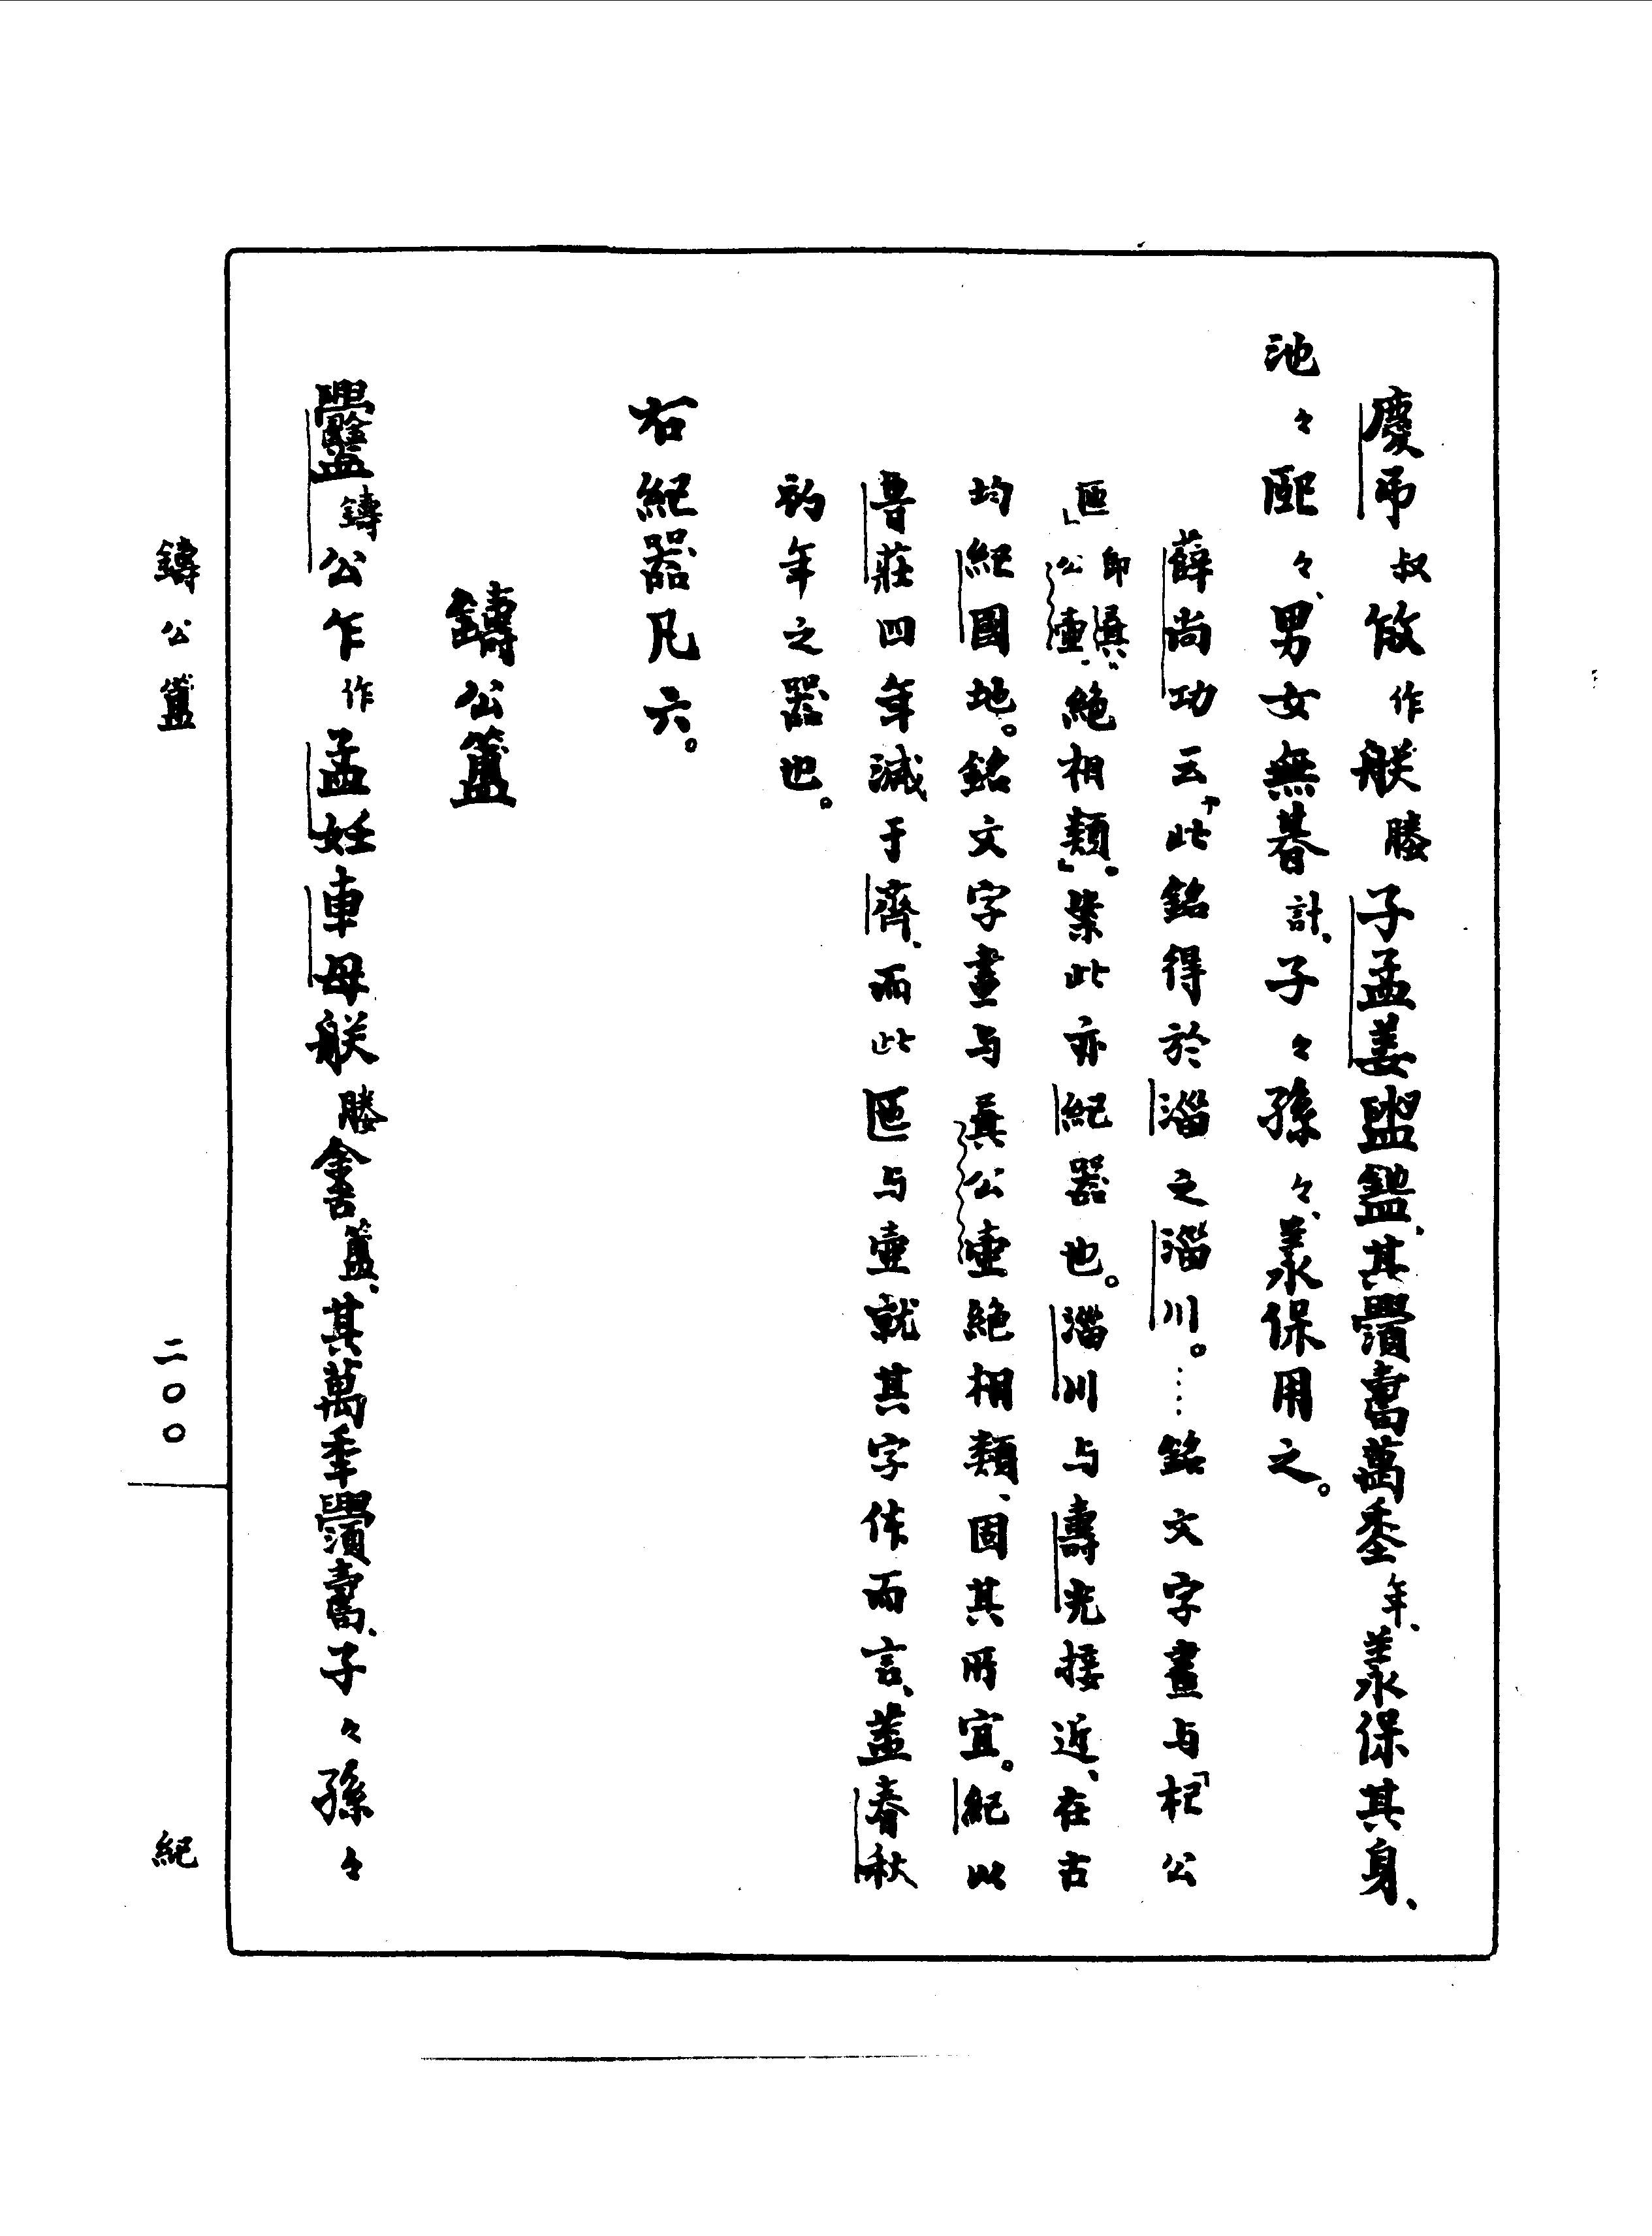 慶弔叔攸作朕媵子孟姜盥鑑、其釁壽萬秊年、羕保其身、
池々熙々、男女無朞計、子々孫々、羕保用之。
薛尚功云「此銘得於淄之淄川。……銘文字畫与『杞公
匜』即㠱公壺、絶相類」。案此亦紀器也。淄川与壽光接近、在古
均紀國地。銘文字畫与㠱公壺絶相類、固其所宜。紀以
魯莊四年滅于齊、而此匜与壺就其字体而言、蓋春秋
初年之器也。
右紀器凡六。
鑄公簠
鑄公乍作孟妊車母朕媵簠、其萬年釁壽、子々孫々
鑄公簠
二〇〇
紀